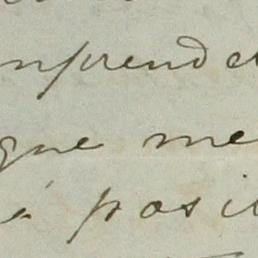 mprende
que me
é posi